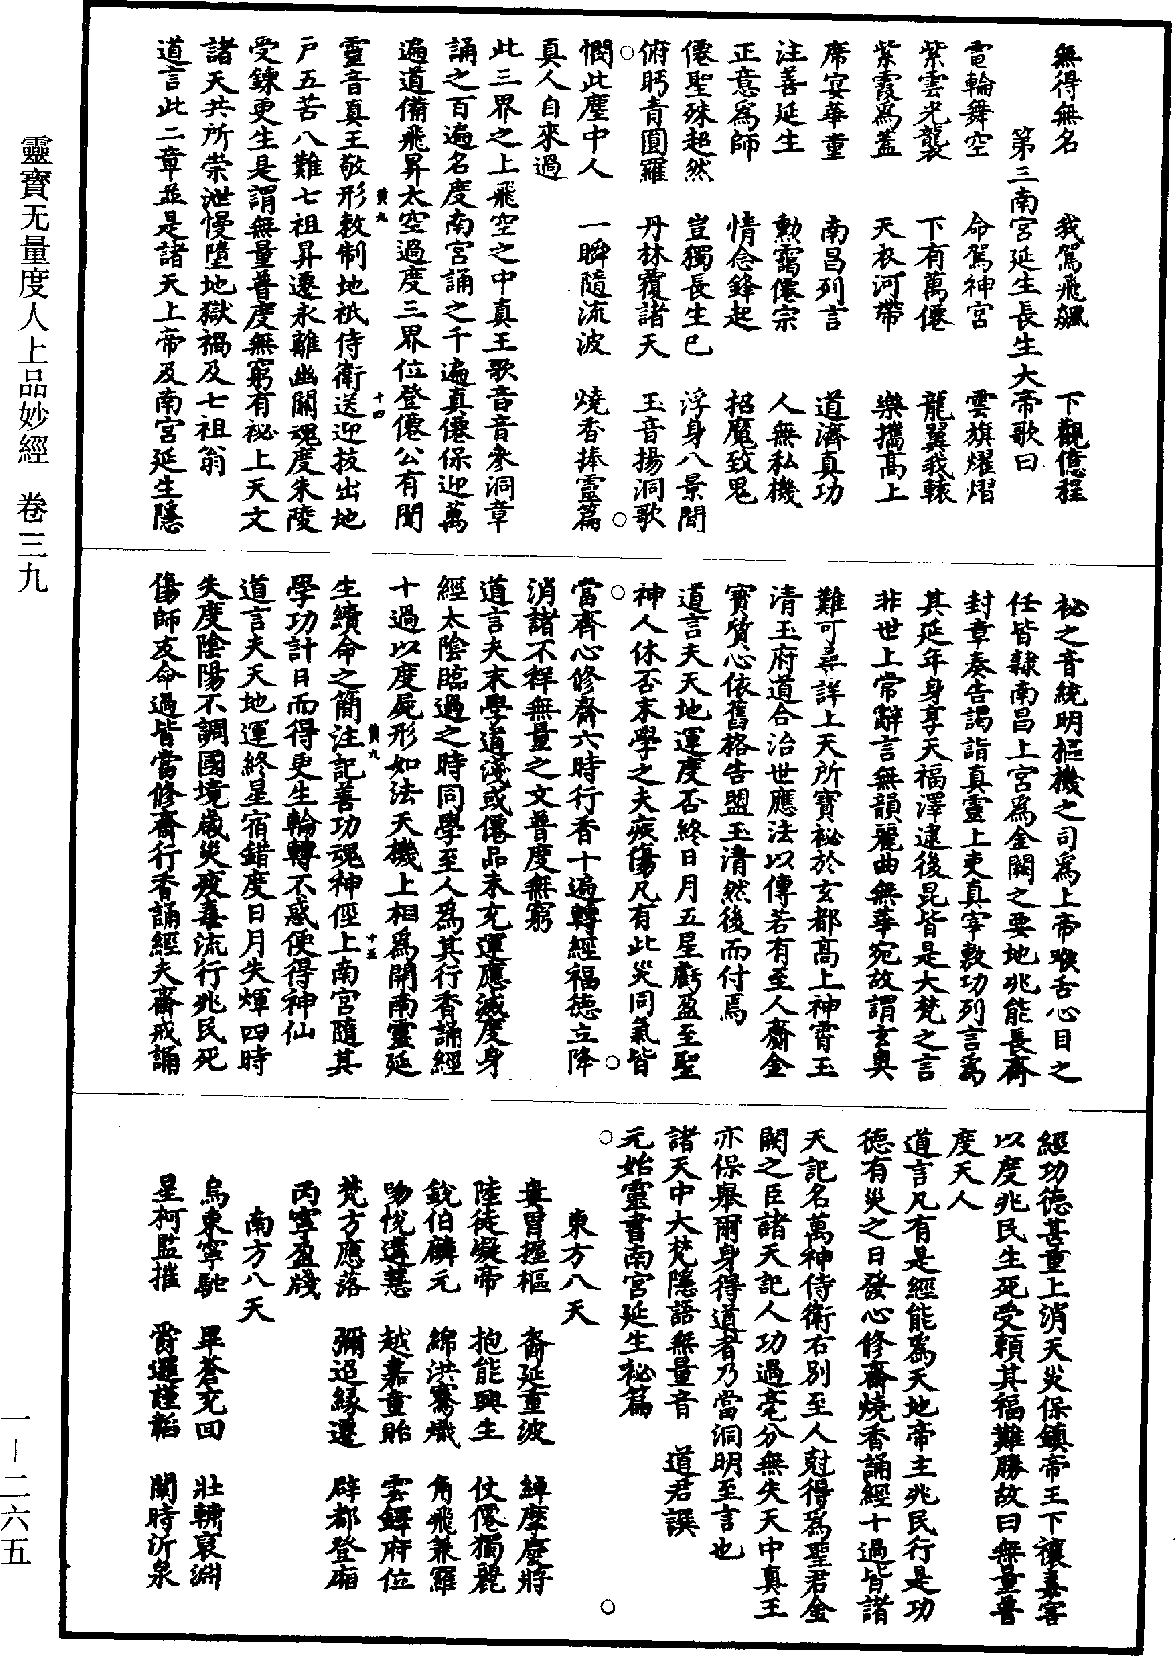 無得無名　我駕飛飆　下觀億程
第三南宮延生長生大帝歌曰
電輪舞空　命駕神宮　雲旗耀熠
紫雲光襲　下有萬僊　龍翼我轅
紫霞為蓋　天衣河帶　樂攜高上
席宴華重　南昌列言　道濟真功
注善延生　勳靄僊宗　人無私機
正意為師　情念鋒起　招魔致鬼
僊聖殊超然　豈獨長生已　浮身八景間
俯眄青圓羅　丹林覆諸天　玉音揚洞歌
憫此塵中人　一瞬隨流波　燒香捧靈篇
真人自來過
此三界之上飛空之中真王歌音音參洞章
誦之百遍名度南宮誦之千遍真僊保迎萬
遍道備飛昇太空過度三界位登僊公有聞
靈音真王敬形敕制地祇侍衛送迎拔出地
戶五苦八難七祖昇遷永離幽關魂度朱陵
受鍊更生是謂無量普度無窮有祕上天文
諸天共所崇泄慢墮地獄禍及七祖翁
道言此二章並是諸天上帝及南宮延生隱
祕之音統明樞機之司為上帝喉舌心目之
任皆隸南昌上宮為金闕之要地兆能長齋
封章奏告謁詣真靈上吏真宰敷功列言為
其延年身享天福澤逮後昆皆是大梵之言
非世上常辭言無韻麗曲無華宛故謂玄奧
難可尋詳上天所寶祕於玄都高上神霄玉
清玉府道合治世應法以傳若有至人齎金
寶質心依舊格告盟玉清然後而付焉
道言夫天地運度否終日月五星虧盈至聖
神人休否末學之夫疾傷凡有此災同氣皆
當齋心修齋六時行香十遍轉經福德立降
消諸不祥無量之文普度無窮
道言夫末學道淺或僊品未充運應滅度身
經太陰臨過之時同學至人為其行香誦經
十過以度屍形如法天機上相為開南靈延
生續命之簡注記善功魂神徑上南宮隨其
學功計日而得更生輪轉不惑便得神仙
道言夫天地運終星宿錯度日月失輝四時
失度陰陽不調國境歲災疫毒流行兆民死
傷師友命過皆當修齋行香誦經夫齋戒誦
經功德甚重上消天災保鎮帝王下禳毒害
以度兆民生死受賴其福難勝故曰無量普
度天人
道言凡有是經能為天地帝主兆民行是功
德有災之日發心修齋燒香誦經十過皆諸
天記名萬神侍衛右別至人尅得為聖君金
闕之臣諸天記人功過毫分無失天中真王
亦保舉爾身得道者乃當洞明至言也
諸天中大梵隱語無量音　道君譔
元始靈書南宮延生祕篇
東方八天
婁胃握樞　裔延重波　綽摩麼將
陸徒凝帝　抱能興生　仗僊獨麗
銳伯麟元　綿洪騫熾　角飛兼羅
吻悅遘慧　越嘉童貽　雲鐸府位
梵方應落　彌迢緣遷　辟都登廂
丙寧盈牋
南方八天
烏東寧馳　畢蒼充回　壯輔裒淵
星柯監摧　爵遷謹韜　闌時沂泉
靈寶无量度人上品妙經　卷三九
一－二六五